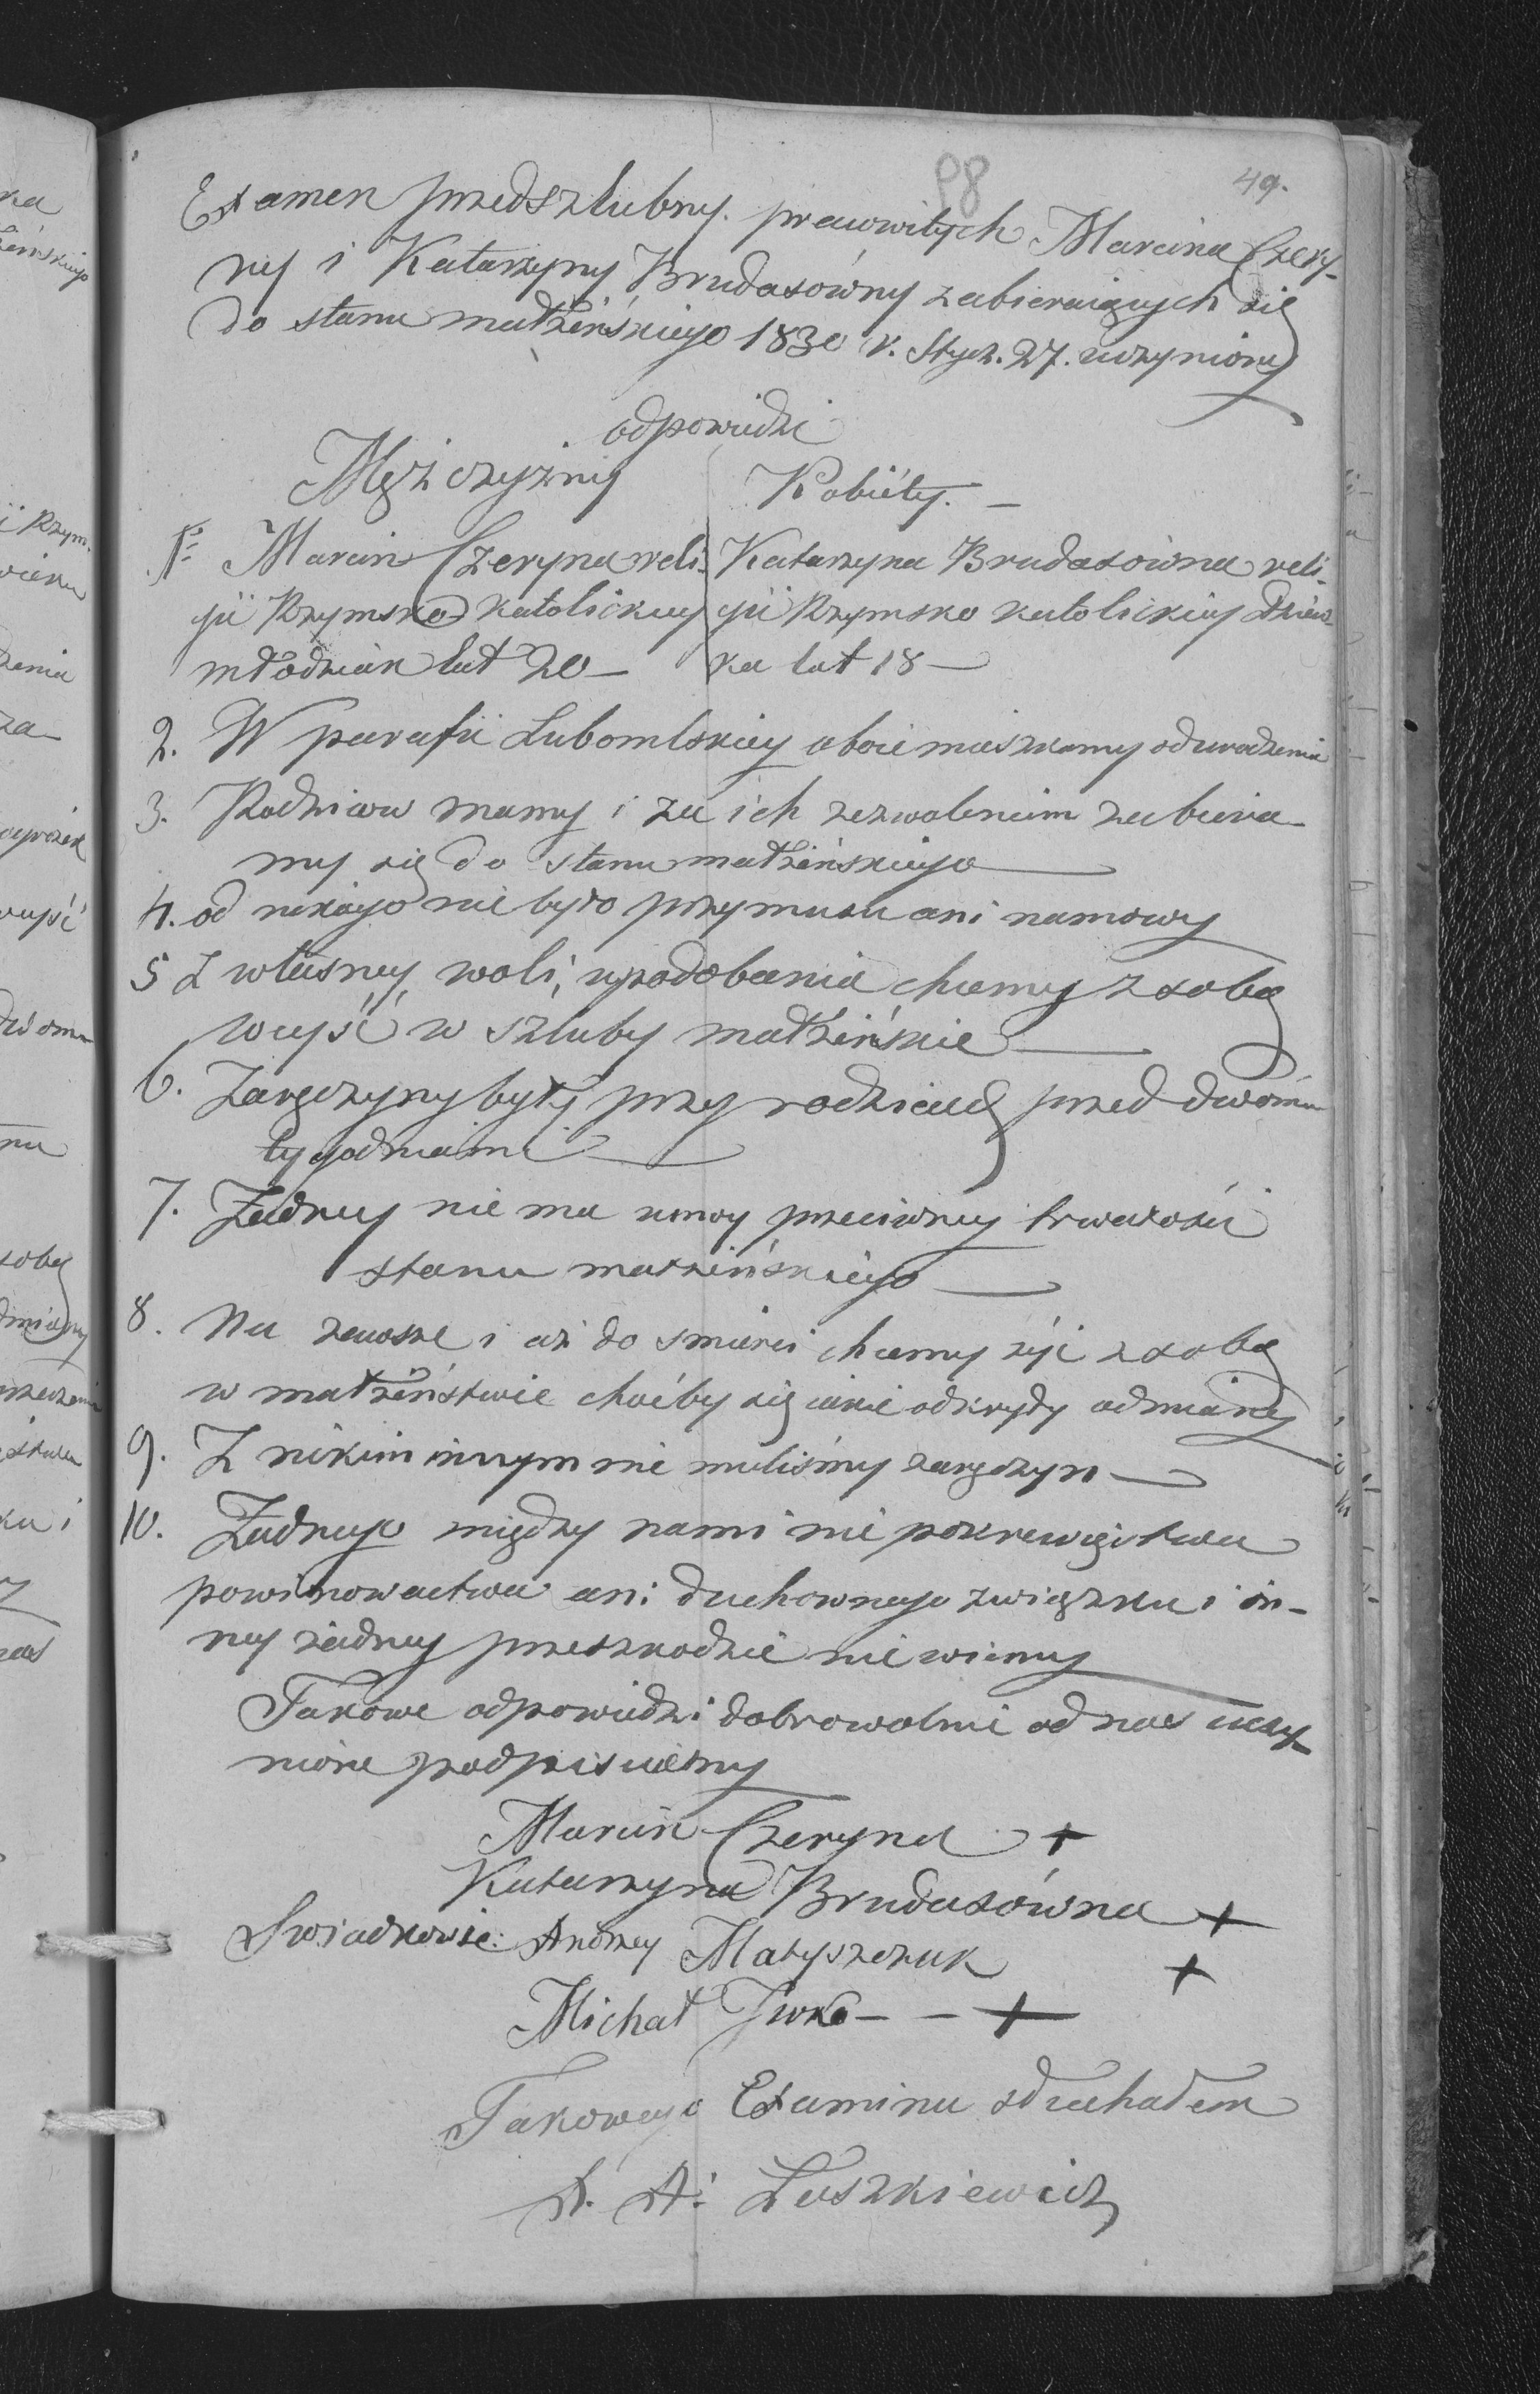 98
49.
Examen przedszlubny prawowitych Marcina Czery-
ny i Katarzyny Brudasówny zabieraiących się
do stanu małżeńskiego 1830 r. Stycz. 27. uczyniony
odpowiedzi
Męzczyzny Kobiéty. –
1º Marcin Czeryna reli- Katarzyna Brudasówna reli-
gii Rzymsko katolickiey gii Rzymsko katolickiey Dziew-
młodzian lat 20 – ka lat 18 –
2. W parafii Lubomlskiey oboie mieszkamy od urodzenia
3. Rodziców mamy i za ich zezwoleniem zabiera-
my się do stanu małżeńskiego
4. od nikógo nie było przymusu ani namowy
5 Z własney woli, upodobania chcemy z sobą
weyść w szluby małżeńskie
6. Zaręczyny były przy rodzicach przed dwóma
tygodniami
7. Żadney nie ma umowy przeciwney trwałości
stanu małżeńskiego
8. Na zawsze i aż do smierci chcemy żyć z sobą
w małżeństwie choćby się iakie odkryły odmiany
9. Z nikim innym nie mieliśmy zaręczyn
10. Żadnego między nami nie pokrewięstwa
powinowactwa ani duchownego związku i in-
ney żadney przeszkodzie nie wiemy
Takowe odpowiedzi dobrowolnie od nas uczy-
nione podpisuiemy
Marcin Czeryna +
Katarzyna Brudasówna +
Swiadkowie: Andrzey Matyszczuk +
Michał Iwko – – +
Takowego Examinu słuchałem
X. A: Łuszkiewicz